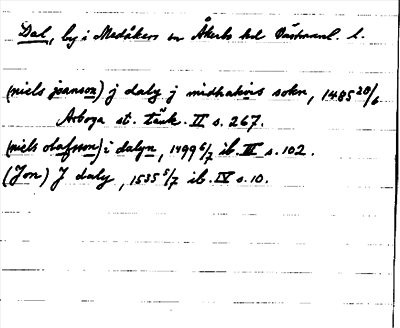 Dal, by i Medåkers sn Åkerbo hd Västmanl. l.
(niels joanson) j daly j midhakwis sokn, 1485 20/6
Arboga st. tänk. II s. 267.
(niels olafsson) i dalyn, 1499 6/7 ib. III s. 102.
(Jon) J daly, 1535 5/7 ib. IV s. 10.